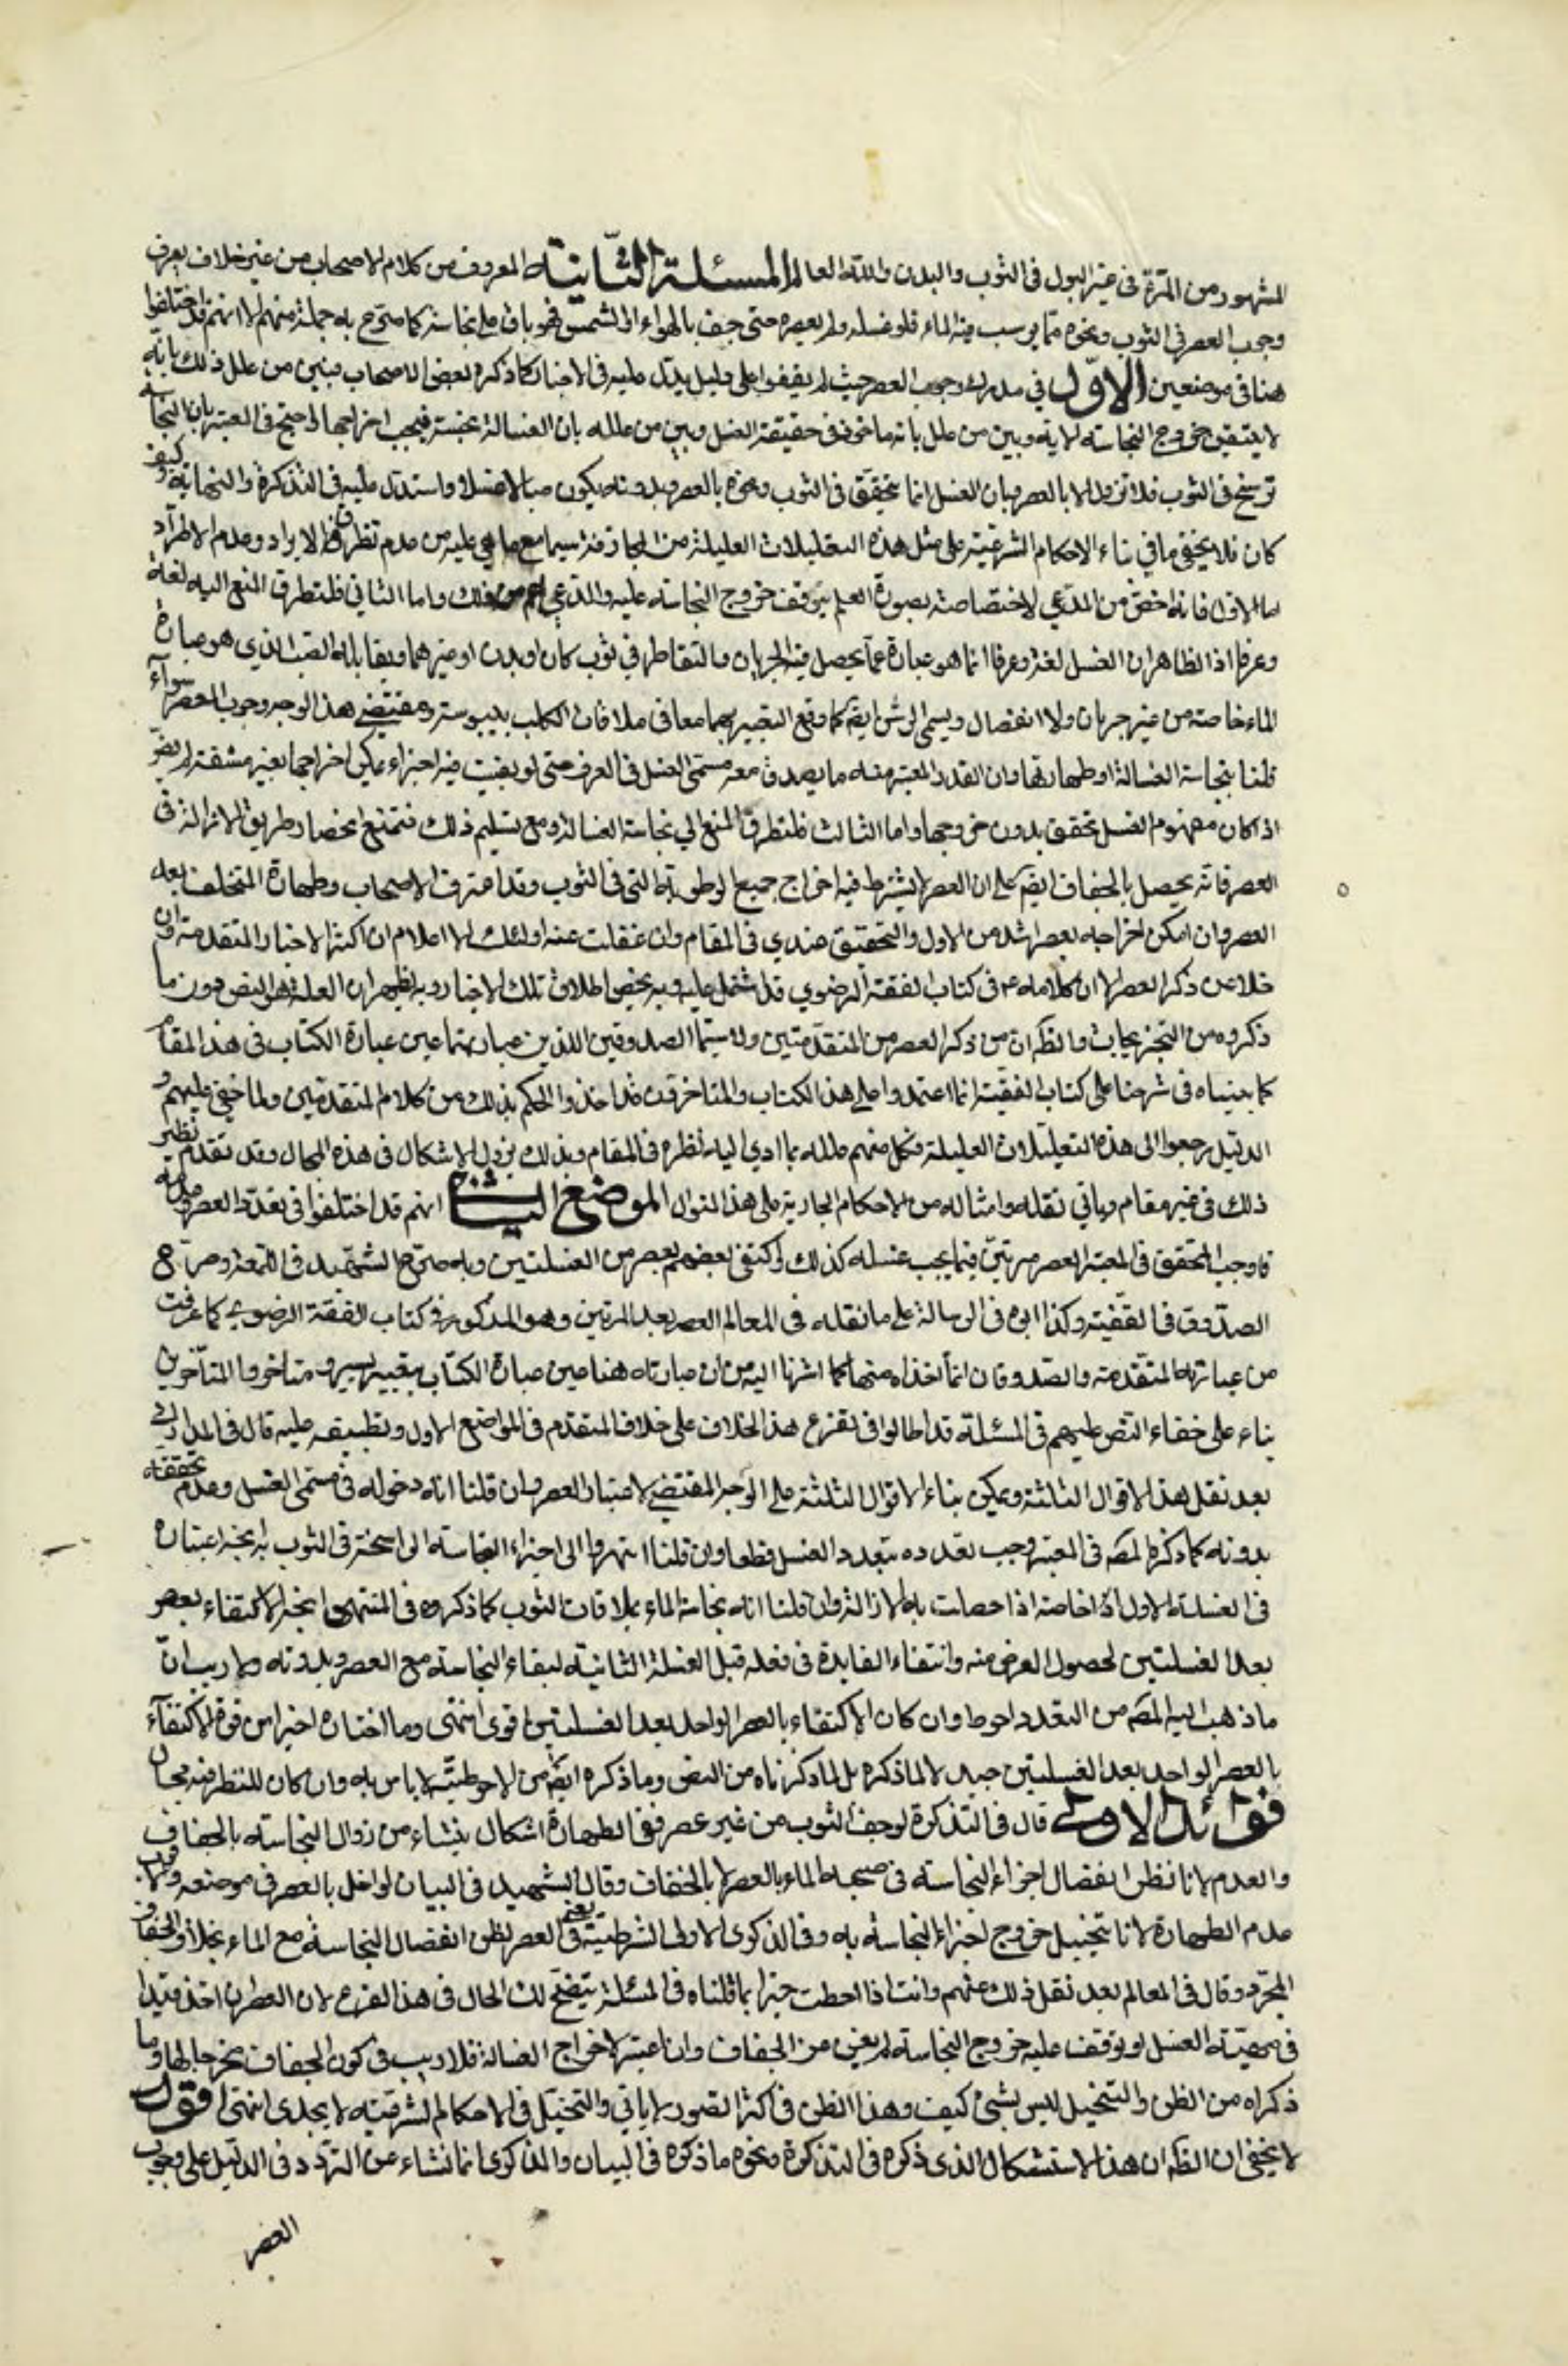 المشهور من المرة في غير البول في الثوب والبدن والله العالم المسئلة الثانية المعروف من كلام الاصحاب من غير خلاف يعرف
وجوب العصر في الثوب ونحوه مما يرسب فيه الماء فلو غسله ولم يعصره حتى جف بالهواء او الشمس فهو باق على نجاسته كما صرح به جملة منهم الا انهم قد اختلفوا
هنا في موضعين الاول في مدرك وجوب العصر حيث لم يقفوا على دليل يدل عليه في الاخبار كما ذكره بعض الاصحاب فبين من علل ذلك بانه
لا يتيقن خروج النجاسة الا به وبين من علل بانه ماخوذ في حقيقة الغسل وبين من علله بان الغسالة نجسة فيجب اخراجها واحتج في المعتبر بان النجاسة
ترسخ في الثوب فلا تزول الا بالعصر وبان الغسل انما يتحقق في الثوب ونحوه بالعصر وبدونه يكون صبا لا غسلا واستدل عليه في التذكرة والنهاية وكيف
كان فلا يخفى ما في بناء الاحكام الشرعية على مثل هذه التعليلات العليلة من المجازفة سيما مع ما هي عليه من عدم تطرق الايراد وعدم الاطراد
اما الاول فانه اخص من المدعي لاختصاصه بصورة العلم بتوقف خروج النجاسة عليه والمدعي اعم من ذلك واما الثاني فلتطرق المنع اليه لغة
وعرفا اذ الظاهر ان الغسل لغة وعرفا انما هو عبارة عما يحصل فيه الجريان والتقاطر في ثوب كان او بدن او غيرهما ويقابله الصب الذي هو عبارة
الماء خاصة من غير جريان ولا انفصال ويسمى الرش ايضا كما وقع التعبير بهما معا في ملاقات الكلب بيبوسته ومقتضى هذا الوجه وجوب العصر سواء
قلنا بنجاسة الغسالة او طهارتها وان القدر المعتبر منه ما يصدق معه مسمى الغسل في العرف حتى لو بقيت فيه اجزاء يمكن اخراجها بغير مشقة لم يضر
اذا كان مفهوم الغسل تحقق بدون خروجها واما الثالث فلتطرق المنع الى نجاسة الغسالة ومع تسليم ذلك فنمنع انحصار طريق الازالة في
العصر فانه يحصل بالجفاف ايضا على ان العصر لا يشترط فيه اخراج جميع الرطوبة التي في الثوب وقد اعترف الاصحاب وطهارة المتخلف بعد
العصر وان امكن اخراجه بعصر اشد من الاول والتحقيق عندي في المقام وان غفلت عنه اولئك الاعلام ان اكثر الاخبار المتقدمة وان
خلا عن ذكر العصر الا ان كلامه ع في كتاب الفقه الرضوي قد اشتمل عليه وبه يخص اطلاق تلك الاخبار وبه يظهر ان العلة هو النص دون ما
ذكروه من التخريجات والظ ان من ذكر العصر من المتقدمين ولا سيما الصدوقين اللذين عبارتهما عين عبارة الكتاب في هذا المقام
كما بيناه في شرحنا على كتاب الفقيه انما اعتمدوا على هذا الكتاب والمتاخرون قد اخذوا الحكم بذلك من كلام المتقدمين ولما خفي عليهم
الدليل رجعوا الى هذه التعليلات العليلة فكل منهم علله بما ادى اليه نظره في المقام وبذلك يزول الاشكال في هذه المجال وقد تقدم نظير
ذلك في غير مقام وياتي نقله وامثاله من الاحكام الجارية على هذا المنوال الموضع الثاني انهم قد اختلفوا في تعدد العصر وعدمه
فاوجب المحقق في المعتبر العصر مرتين فيما يجب غسله كذلك واكتفى بعضهم بعصر من الغسلتين وبه صرح الشهيد في اللمعة وصرح
الصدوق في الفقيه وكذا ابوه في الرسالة على ما نقله في المعالم العصر بعد المرتين وهو المذكور في كتاب الفقه الرضوي كما عرفت
من عبارته المتقدمة والصدوقان انما اخذاه منها كما اشرنا اليه من ان عبارته هنا عين عبارة الكتاب بتغيير يسير و متاخروا المتاخرين
بناء على خفاء النص عليهم في المسئلة قد اطالوا في تفرع هذا الخلاف على خلاف المتقدم في المواضع الاول وتطبيقه عليه قال في المدارك
بعد نقل هذا الاقوال الثلثة ويمكن بناء الاقوال الثلثة على الوجه المقتضي لاعتبار العصر وان قلنا انه دخوله في مسمى الغسل وعدم تحققه
بدونه كما ذكره المص في المعتبر وجب تعدده بتعدد الغسل قطعا وان قلنا انه زوال اجزاء النجاسة الراسخة في الثوب به اتجه اعتباره
في الغسلة الاولى خاصة اذا حصلت به الازالة وان قلنا انه نجاسة الماء بملاقات الثوب كما ذكروه في المنتهى اتجه الاكتفاء بعصر
بعد الغسلتين لحصول الغرض منه وانتفاء الفايدة في فعله قبل الغسلة الثانية لبقاء النجاسة مع العصر وبدونه ولا ريب ان
ما ذهب اليه المص من التعدد احوط وان كان الاكتفاء بالعصر الواحد بعد الغسلتين اقوى انتهى وما اختاره اخيرا من قوة الاكتفاء
بالعصر الواحد بعد الغسلتين جيد لا لما ذكره بل لما ذكرناه من النص وما ذكره ايضا من الاحوطية لا باس به وان كان للنظر فيه مجال
فوائد الاولى قال في التذكرة لو جف الثوب من غير عصر ففي الطهارة اشكال ينشاء من زوال النجاسة بالجفاف
والعدم لانا نظن انفصال اجزاء النجاسة في صحبة الماء بالعصر لا بالجفاف وقال الشهيد في البيان لو اخل بالعصر في موضعه فالاقرب
عدم الطهارة لانا نتخيل خروج اجزاء النجاسة به وفي الذكرى الاولى الشرطية يعني في العصر لظن انفصال النجاسة مع الماء بخلاف الجفاف
المجرد وقال في المعالم بعد نقل ذلك عنهم وانت اذا احطت خبرا بما قلناه في المسئلة يتضح لك الحال في هذا الفرع لان العصر ان اخذ قيدا
في مهية الغسل او توقف عليه خروج النجاسة لم يغن عنه الجفاف وان اعتبر لاخراج الغسالة فلا ريب في كون الجفاف مخرجا لها وما
ذكراه من الظن والتخيل ليس بشئ كيف وهذا الظن في اكثر الصور لا ياتي والتخيل في الاحكام الشرعية لا يجدى انتهى اقول
لا يخفى ان الظ ان هذا الاستشكال الذي ذكره في التذكرة ونحوه ما ذكره في البيان والذكرى انما نشاء عن التردد في الدليل على وجوب
العصر